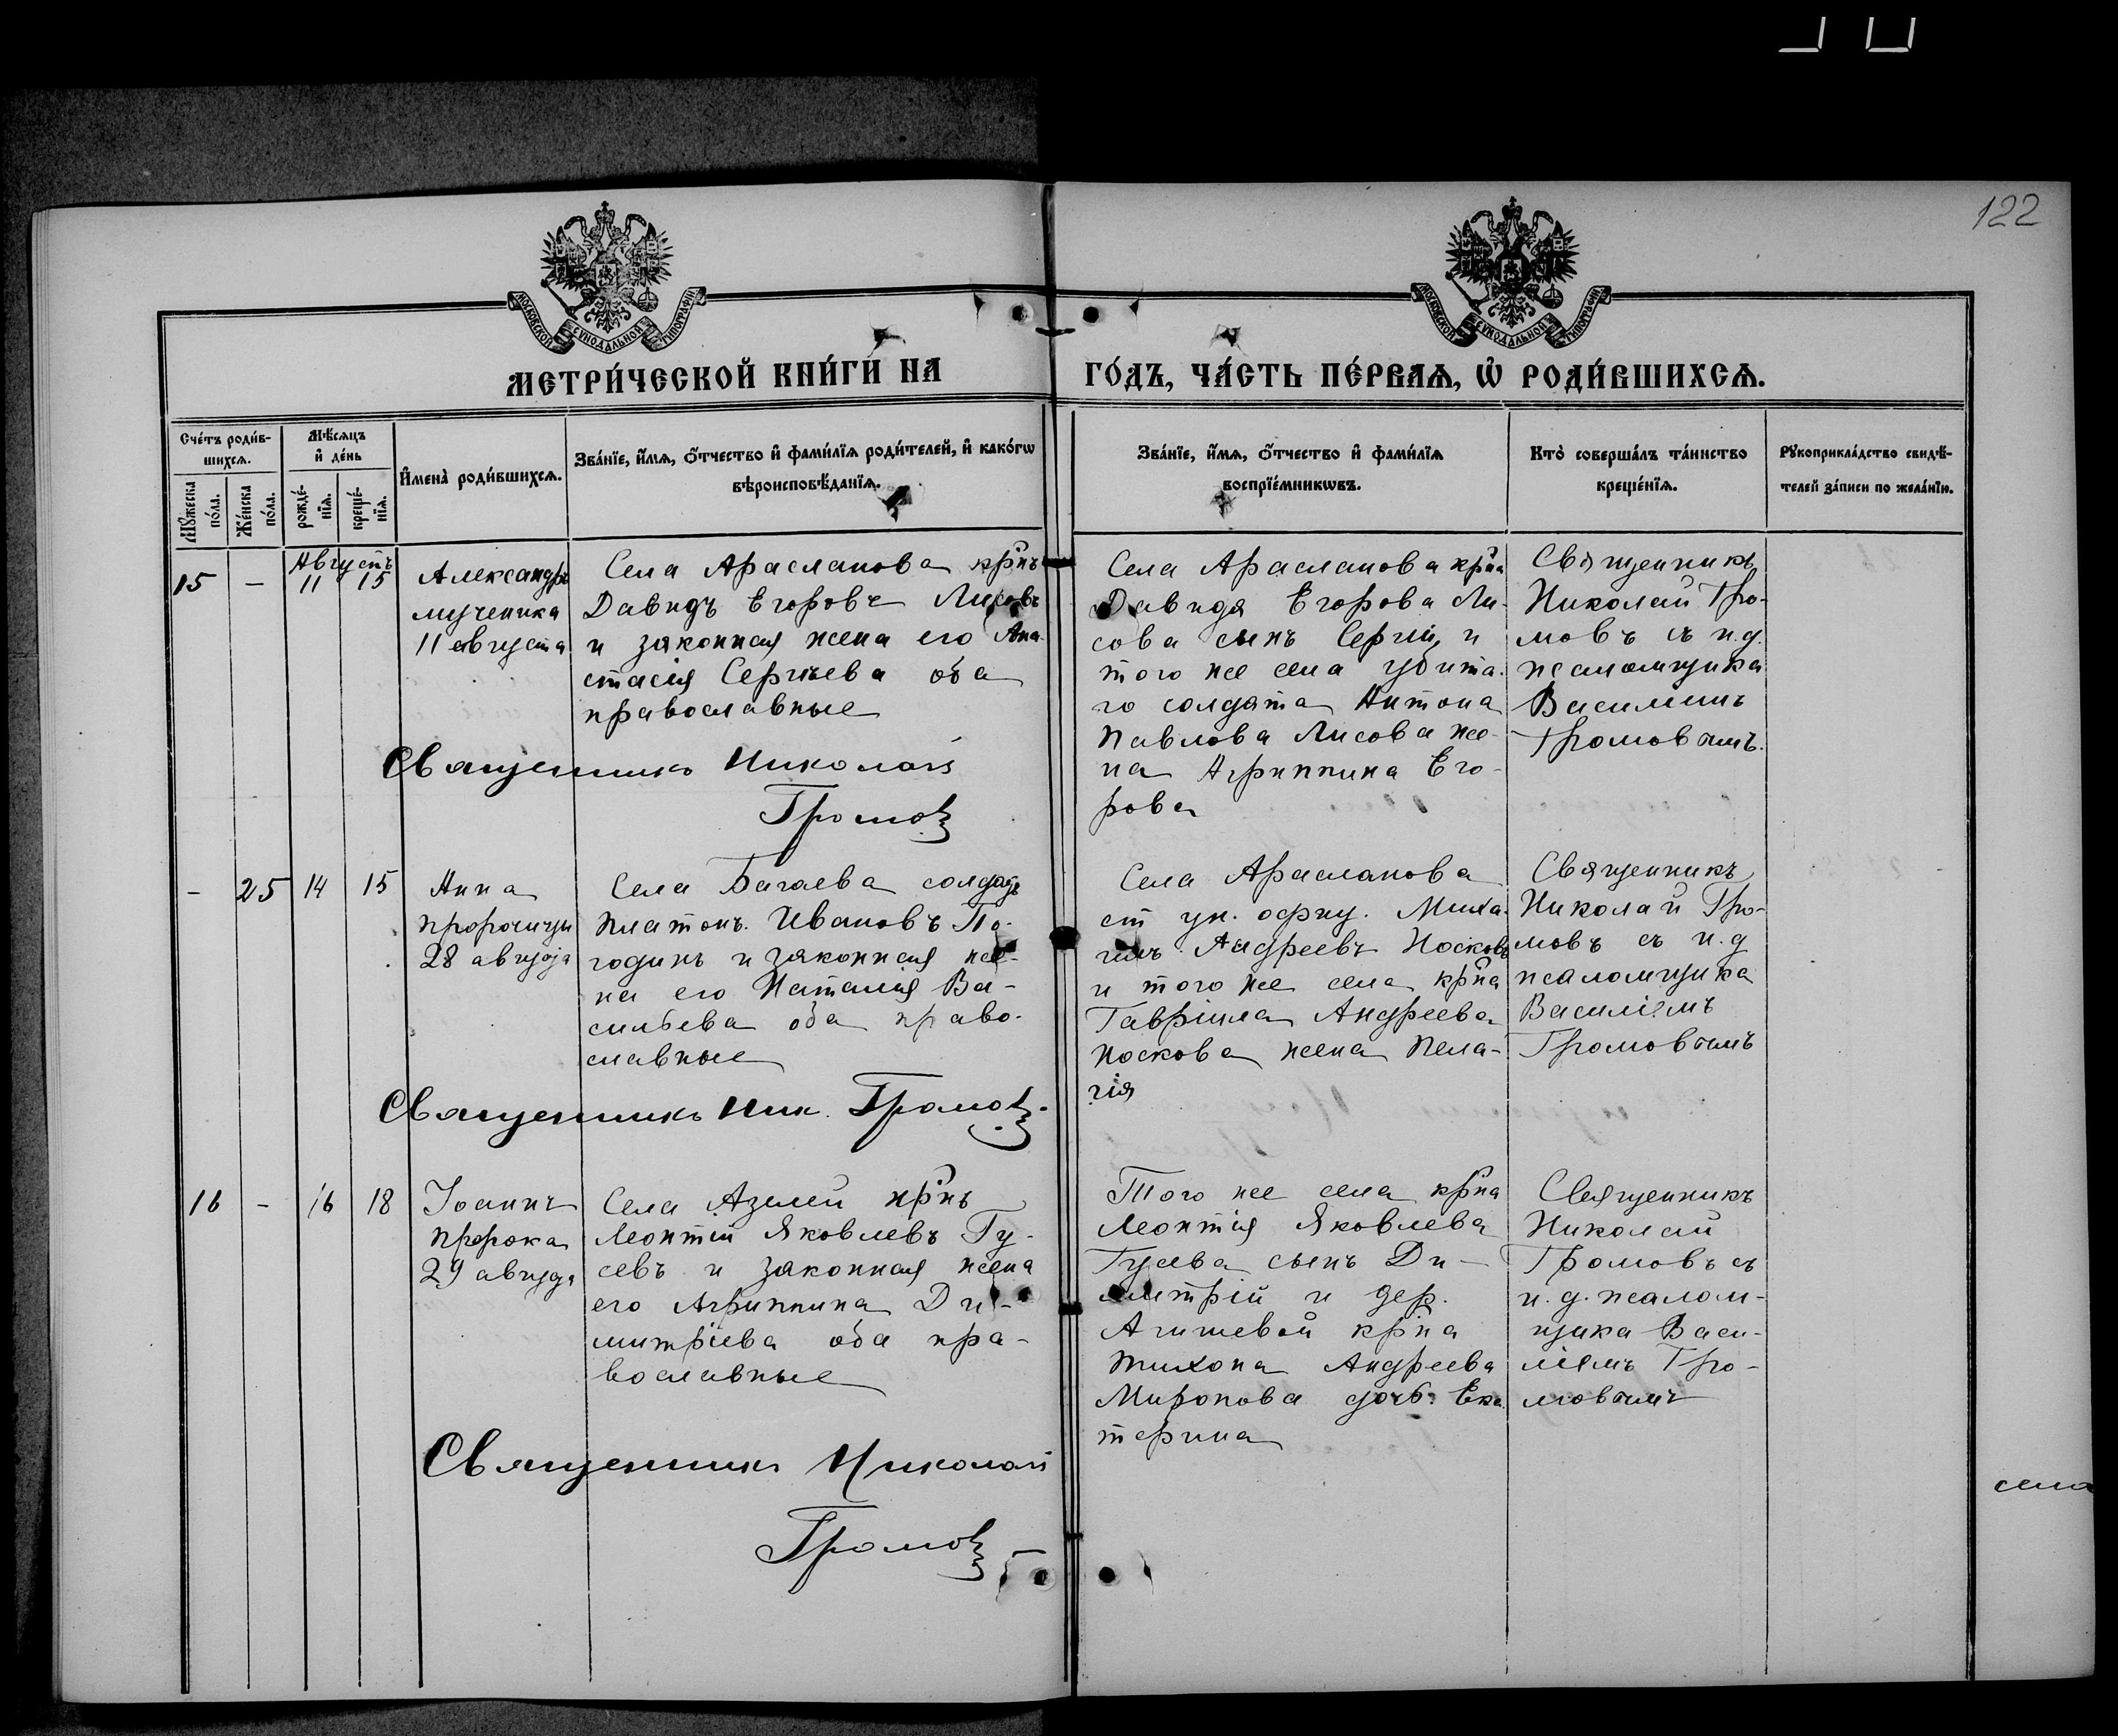 122
МОСКОВСКОЙ СѴНОДАЛЬНОЙ ТИПОГРАФІИ
МОСКОВСКОЙ СѴНОДАЛЬНОЙ ТИПОГРАФІИ
МЕТРИ́ЧЕСКОЙ КНИ́ГИ НА
ГО́ДЪ, ЧА́СТЬ ПЕ́РВАѦ, Ѡ҆ РОДИ́ВШИХСѦ.
Сче́тъ роди́в-
шихсѧ.
Мꙋ́жеска
по́ла.
Же́нска
по́ла.
Мѣ́сѧцъ
и҆ де́нь
рожде́-
нїѧ.
креще́-
нїѧ.
И҆мена̀ роди́вшихсѧ.
Зва́нїе, и҆́мѧ, ѻ҆́тчество и҆ фами́лїѧ роди́телей, и҆ како́гѡ
вѣроисповѣ́данїѧ.
Зва́нїе, и҆́мѧ, ѻ҆́тчество и҆ фами́лїѧ
воспрїе́мникѡвъ.
Кто̀ соверша́лъ та́инство
креще́нїѧ.
Рꙋкоприкла́дство свидѣ́-
телей за́писи по жела́нїю.
Августъ
15
—
11
15
Александръ
мученика
11 августа
Села Арасланова кр̃нъ
Давидъ Егоровъ Лисовъ
и законная жена его Ана-
стасія Сергѣева оба
православные
Села Арасланова кр̃на
Давида Егорова Ли-
сова сынъ Сергій, и
того же села убита-
го солдата Антона
Павлова Лисова же-
на Агриппина Его-
рова
Священникъ
Николай Гро-
мовъ съ и.д.
псаломщика
Василіемъ
Громовымъ.
Священникъ Николай
Громовъ
-
25
14
15
Анна
пророчицы
28 августа
Села Багаева солдатъ
Платонъ Ивановъ По-
годинъ и законная же-
на его Наталія Ва-
сильева оба право-
славные
Села Арасланова
ст ун. офиц. Миха-
илъ Андреевъ Носковъ
и того же села кр̃на
Гавріила Андреева
Носкова жена Пела-
гія
Священникъ
Николай Гро-
мовъ съ и.д
псаломщика
Василіемъ
Громовымъ
Священникъ Ник. Громовъ.
16
-
16
18
Іоаннъ
пророка
29 августа
Села Азилей кр̃нъ
Леонтій Яковлевъ Гу-
севъ и законная жена
его Агриппина Ди-
митріева оба пра-
вославные
Того же села кр̃на
Леонтія Яковлева
Гусева сынъ Ди-
митрій и дер.
Агишевой кр̃на
Тихона Андреева
Миронова дочь Ека-
терина
Священникъ
Николай
Громовъ съ
и.д. псалом-
щика Васи-
ліемъ Гро-
мовымъ
Священникъ Николай
Громовъ
села